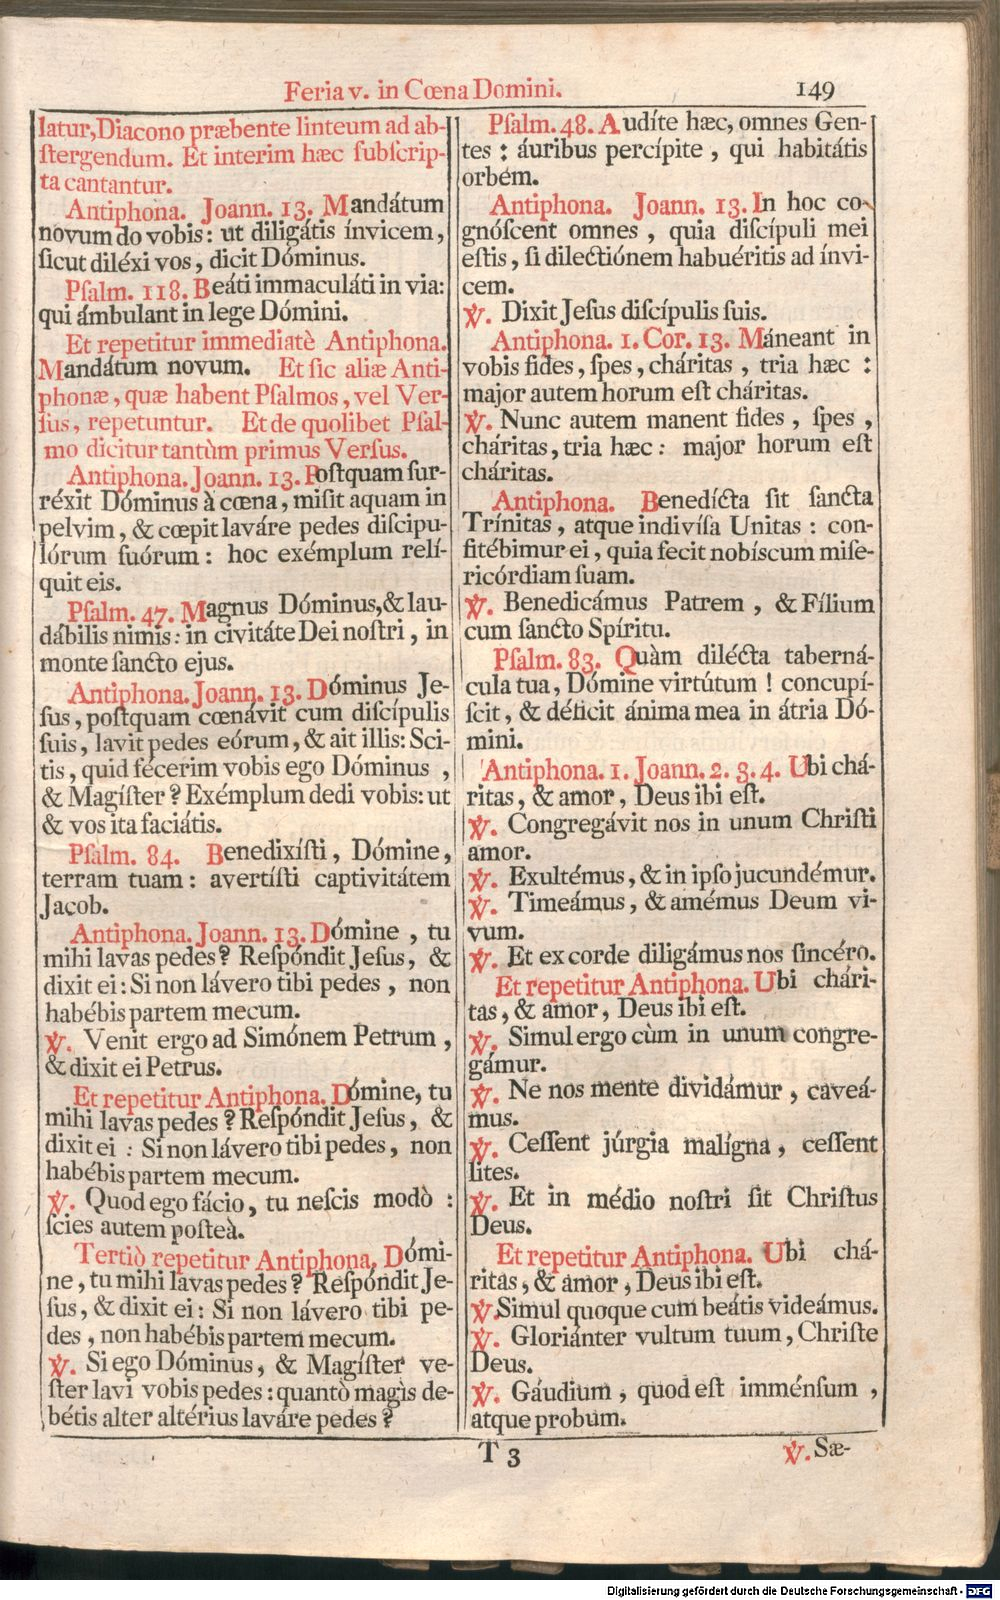 Feria v. in Cœna Domini. 149
latur, Diacono præbente linteum ad ab-
ſtergendum. Et interim hæc ſubſcrip-
ta cantantur.
Antiphona. Joann. 13. Mandátum
novum do vobis: ut diligátis ínvicem,
ſicut diléxi vos, dicit Dóminus.
Pſalm. 118. Beáti immaculáti in via:
qui ámbulant in lege Dómini.
Et repetitur immediatè Antiphona.
Mandátum novum. Et ſic aliæ Anti-
phonæ, quæ habent Pſalmos, vel Ver-
ſus, repetuntur. Et de quolibet Pſal-
mo dicitur tantùm primus Verſus.
Antiphona. Joann. 13. Poſtquam ſur-
réxit Dóminus à cœna, miſit aquam in
pelvim, & cœpit laváre pedes diſcipu-
lórum ſuórum: hoc exémplum relí-
quit eis.
Pſalm. 47. Magnus Dóminus, & lau-
dábilis nimis: in civitáte Dei noſtri, in
monte ſancto ejus.
Antiphona. Joann. 13. Dóminus Je-
ſus, poſtquam cœnávit cum diſcípulis
ſuis, lavit pedes eórum, & ait illis: Sci-
tis, quid fécerim vobis ego Dóminus,
& Magíſter? Exémplum dedi vobis: ut
& vos ita faciátis.
Pſalm. 84. Benedixíſti, Dómine,
terram tuam: avertíſti captivitátem
Jacob.
Antiphona. Joann. 13. Dómine, tu
mihi lavas pedes? Reſpóndit Jeſus, &
dixit ei: Si non lávero tibi pedes, non
habébis partem mecum.
℣. Venit ergo ad Simónem Petrum,
& dixit ei Petrus.
Et repetitur Antiphona. Dómine, tu
mihi lavas pedes? Reſpóndit Jeſus, &
dixit ei: Si non lávero tibi pedes, non
habébis partem mecum.
℣. Quod ego fácio, tu neſcis modò:
ſcies autem poſteà.
Tertiò repetitur Antiphona. Dómi-
ne, tu mihi lavas pedes? Reſpóndit Je-
ſus, & dixit ei: Si non lávero tibi pe-
des, non habébis partem mecum.
℣. Si ego Dóminus, & Magíſter ve-
ſter lavi vobis pedes: quantò magìs de-
bétis alter altérius laváre pedes?
Pſalm. 48. Audíte hæc, omnes Gen-
tes: áuribus percípite, qui habitátis
orbem.
Antiphona. Joann. 13. In hoc co-
gnóſcent omnes, quia diſcípuli mei
eſtis, ſi dilectiónem habuéritis ad ínvi-
cem.
℣. Dixit Jeſus diſcípulis ſuis.
Antiphona. 1. Cor. 13. Máneant in
vobis fides, ſpes, cháritas, tria hæc:
major autem horum eſt cháritas.
℣. Nunc autem manent fides, ſpes,
cháritas, tria hæc: major horum eſt
cháritas.
Antiphona. Benedícta ſit ſancta
Trínitas, atque indivíſa Unitas: con-
fitébimur ei, quia fecit nobíscum miſe-
ricórdiam ſuam.
℣. Benedicámus Patrem, & Fílium
cum ſancto Spíritu.
Pſalm. 83. Quàm dilécta taberná-
cula tua, Dómine virtútum! concupí-
ſcit, & déficit ánima mea in átria Dó-
mini.
Antiphona. 1. Joann. 2. 3. 4. Ubi chá-
ritas, & amor, Deus ibi eſt.
℣. Congregávit nos in unum Chriſti
amor.
℣. Exultémus, & in ipſo jucundémur.
℣. Timeámus, & amémus Deum vi-
vum.
℣. Et ex corde diligámus nos ſincéro.
Et repetitur Antiphona. Ubi chári-
tas, & amor, Deus ibi eſt.
℣. Simul ergo cùm in unum congre-
gámur.
℣. Ne nos mente dividámur, caveá-
mus.
℣. Ceſſent júrgia malígna, ceſſent
lites.
℣. Et in médio noſtri ſit Chriſtus
Deus.
Et repetitur Antiphona. Ubi chá-
ritas, & amor, Deus ibi eſt.
℣. Simul quoque cum beátis videámus.
℣. Gloriánter vultum tuum, Chriſte
Deus.
℣. Gáudium, quod eſt imménſum,
atque probum.
T 3 ℣. Sæ-
Digitalisierung gefördert durch die Deutsche Forschungsgemeinschaft - DFG